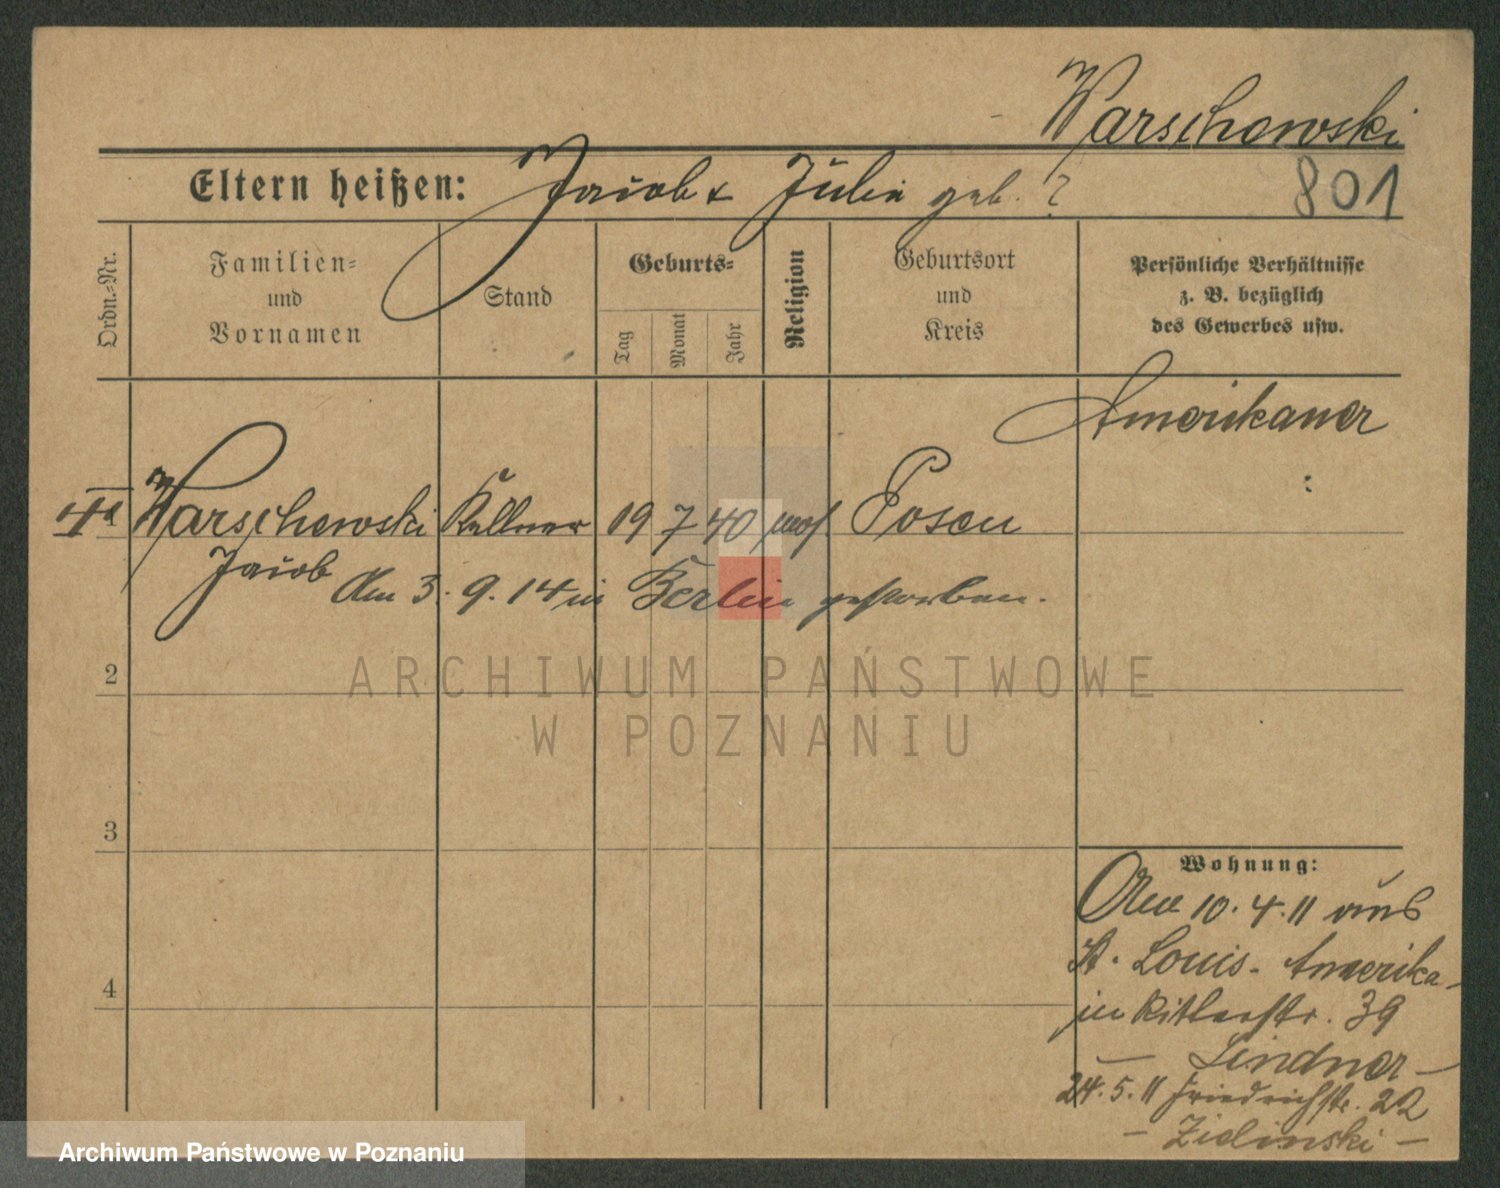 Warschowski
Eltern heißen: Jacob & Julie geb. ?
801
Ordn.-Nr.
Familien-
und
Vornamen
Stand
Geburts-
Tag
Monat
Jahr
Religion
Geburtsort
und
Kreis
Persönliche Verhältnisse
z. B. bezüglich
des Gewerbes usw.
Amerikaner
Warschowski Kellner 19 7 40 mos. Posen
Jacob
Am 3. 9. 14 in Berlin gestorben.
ARCHIWUM PAŃSTWOWE
W POZNANIU
2
3
4
Wohnung:
Am 10. 4. 11 aus
St. Louis - Amerika -
in Ritterstr. 39
Lindner -
24. 5. 11 Friedrichstr. 22
- Zielinski -
Archiwum Państwowe w Poznaniu